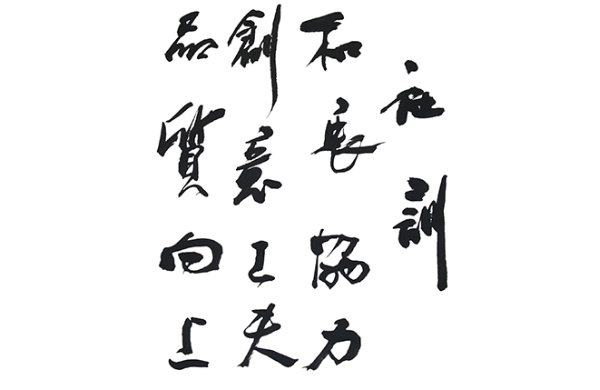 社訓
和衷協力
創意工夫
品質向上